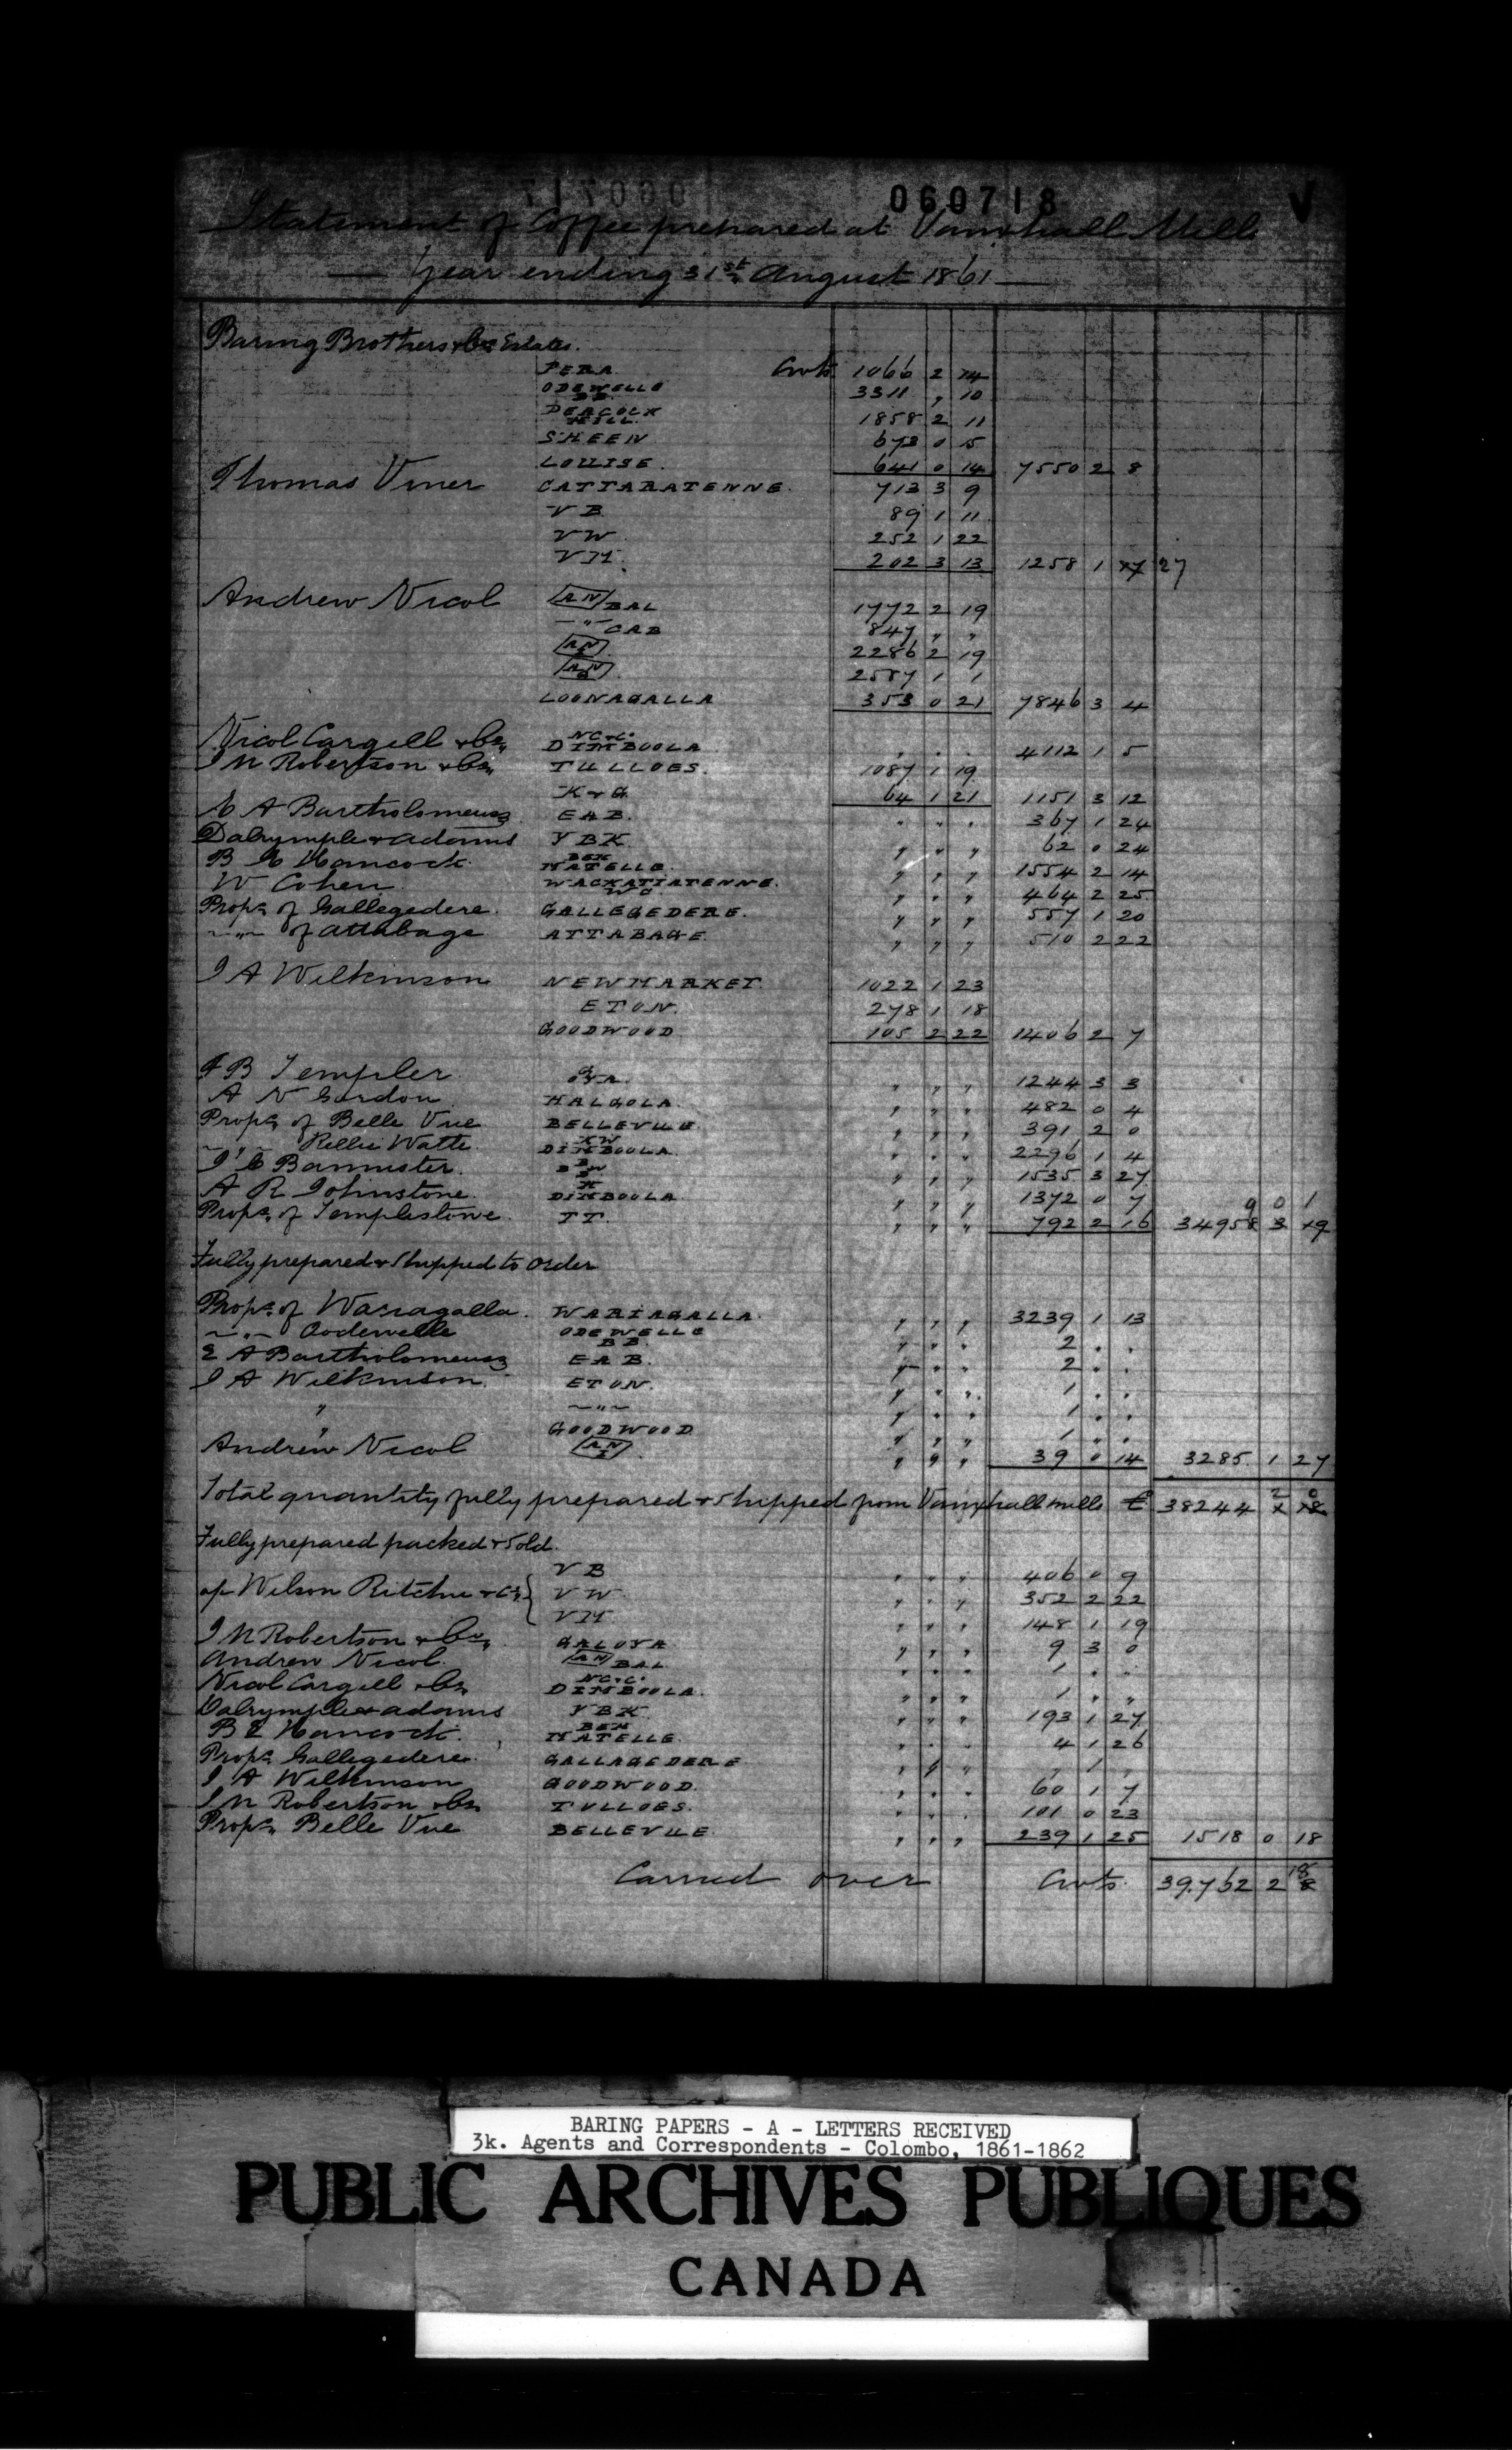 060718
V
Statement of Coffee prepared at Vauxhall Mills
— Year ending 31st August 1861 —
Baring Brothers & Co Estates.
PERA Cwts. 1066 2 14
ODEWELLE BB. 3311 " 10
PEACOCK HILL. 1858 2 11
SHEEN 673 0 15
LOUISE. 641 0 14 7550 2 8
Thomas Viner CATTARATENNE. 713 3 9
VB 89 1 11
VW 252 1 22
VM. 202 3 13 1258 1 27
Andrew Nicol AN BAL 1772 2 19
—"— CAB 847 " "
AN 2286 2 19
AN 2587 1 1
LOONAGALLA 353 0 21 7846 3 4
Nicol Cargill & Co NC&C. DIMBOOLA . . . 4112 1 5
J M Robertson & Co TULLOES. 1087 1 19
K & G 64 1 21 1151 3 12
E A Bartholomeusz EAB. " " " 367 1 24
Dalrymple & Adams YBK. " " " 62 0 24
B E Hancock BEH MATELLE. " " " 1554 2 14
W Cohen WACKATIATENNE. WC " " " 464 2 25
Props of Gallegedere. GALLEGEDERE. " " " 557 1 20
~"~ of Attabage ATTABAGE " " " 510 2 22
J A Wilkinson NEWMARKET. 1022 1 23
ETON. 278 1 18
GOODWOOD 105 2 22 1406 2 7
F B Templer " " " 1244 3 3
A N Gordon HALGOLA. " " " 482 0 4
Props of Belle Vue BELLEVUE. " " " 391 2 0
~"~ Kellie Watte KW DIMBOOLA. " " " 2296 1 4
J E Bannister. " " " 1535 3 27
A R Johnstone. DIMBOOLA " " " 1372 0 7 9 0 1
Props of Templestowe. TT. " " " 792 2 16 34958 3 19
Fully prepared & Shipped to order
Props of Wariagalla. WARIAGALLA. " " " 3239 1 13
~"~ Oodewelle ODEWELLE BB. " " " 2 . .
E A Bartholomeusz EAB. " " " 2 . .
J A Wilkinson. ETON. " " " 1 . .
" ~"~ " " " 1 . .
" GOODWOOD " " " 1 " .
Andrew Nicol AN " " " 39 0 14 3285 1 27
Total quantity fully prepared & shipped from Vauxhall mills C 38244 2 0
Fully prepared packed & Sold.
VB " " " 406 0 9
ap Wilson Ritchie & Co { VW " " " 352 2 22
VM " " " 148 1 19
J M Robertson & Co GALOYA " " " 9 3 0
Andrew Nicol. AN BAL " " " 1 . .
Nicol Cargill & Co NC&C. DIMBOOLA. " " " 1 " "
Dalrymple & Adams YBK " " " 193 1 27
B E Hancock. BEH MATELLE. " " " 4 1 26
Props Gallegedere. GALLAGEDERE " " " " 1 "
J A Wilkinson GOODWOOD. " " " 60 1 7
J M Robertson & Co TULLOES. " " " 101 0 23
Props Belle Vue BELLEVUE. " " " 239 1 25 1518 0 18
Carried over Cwts. 39.762 2 18
BARING PAPERS - A - LETTERS RECEIVED
3k. Agents and Correspondents - Colombo, 1861-1862
PUBLIC ARCHIVES PUBLIQUES
CANADA